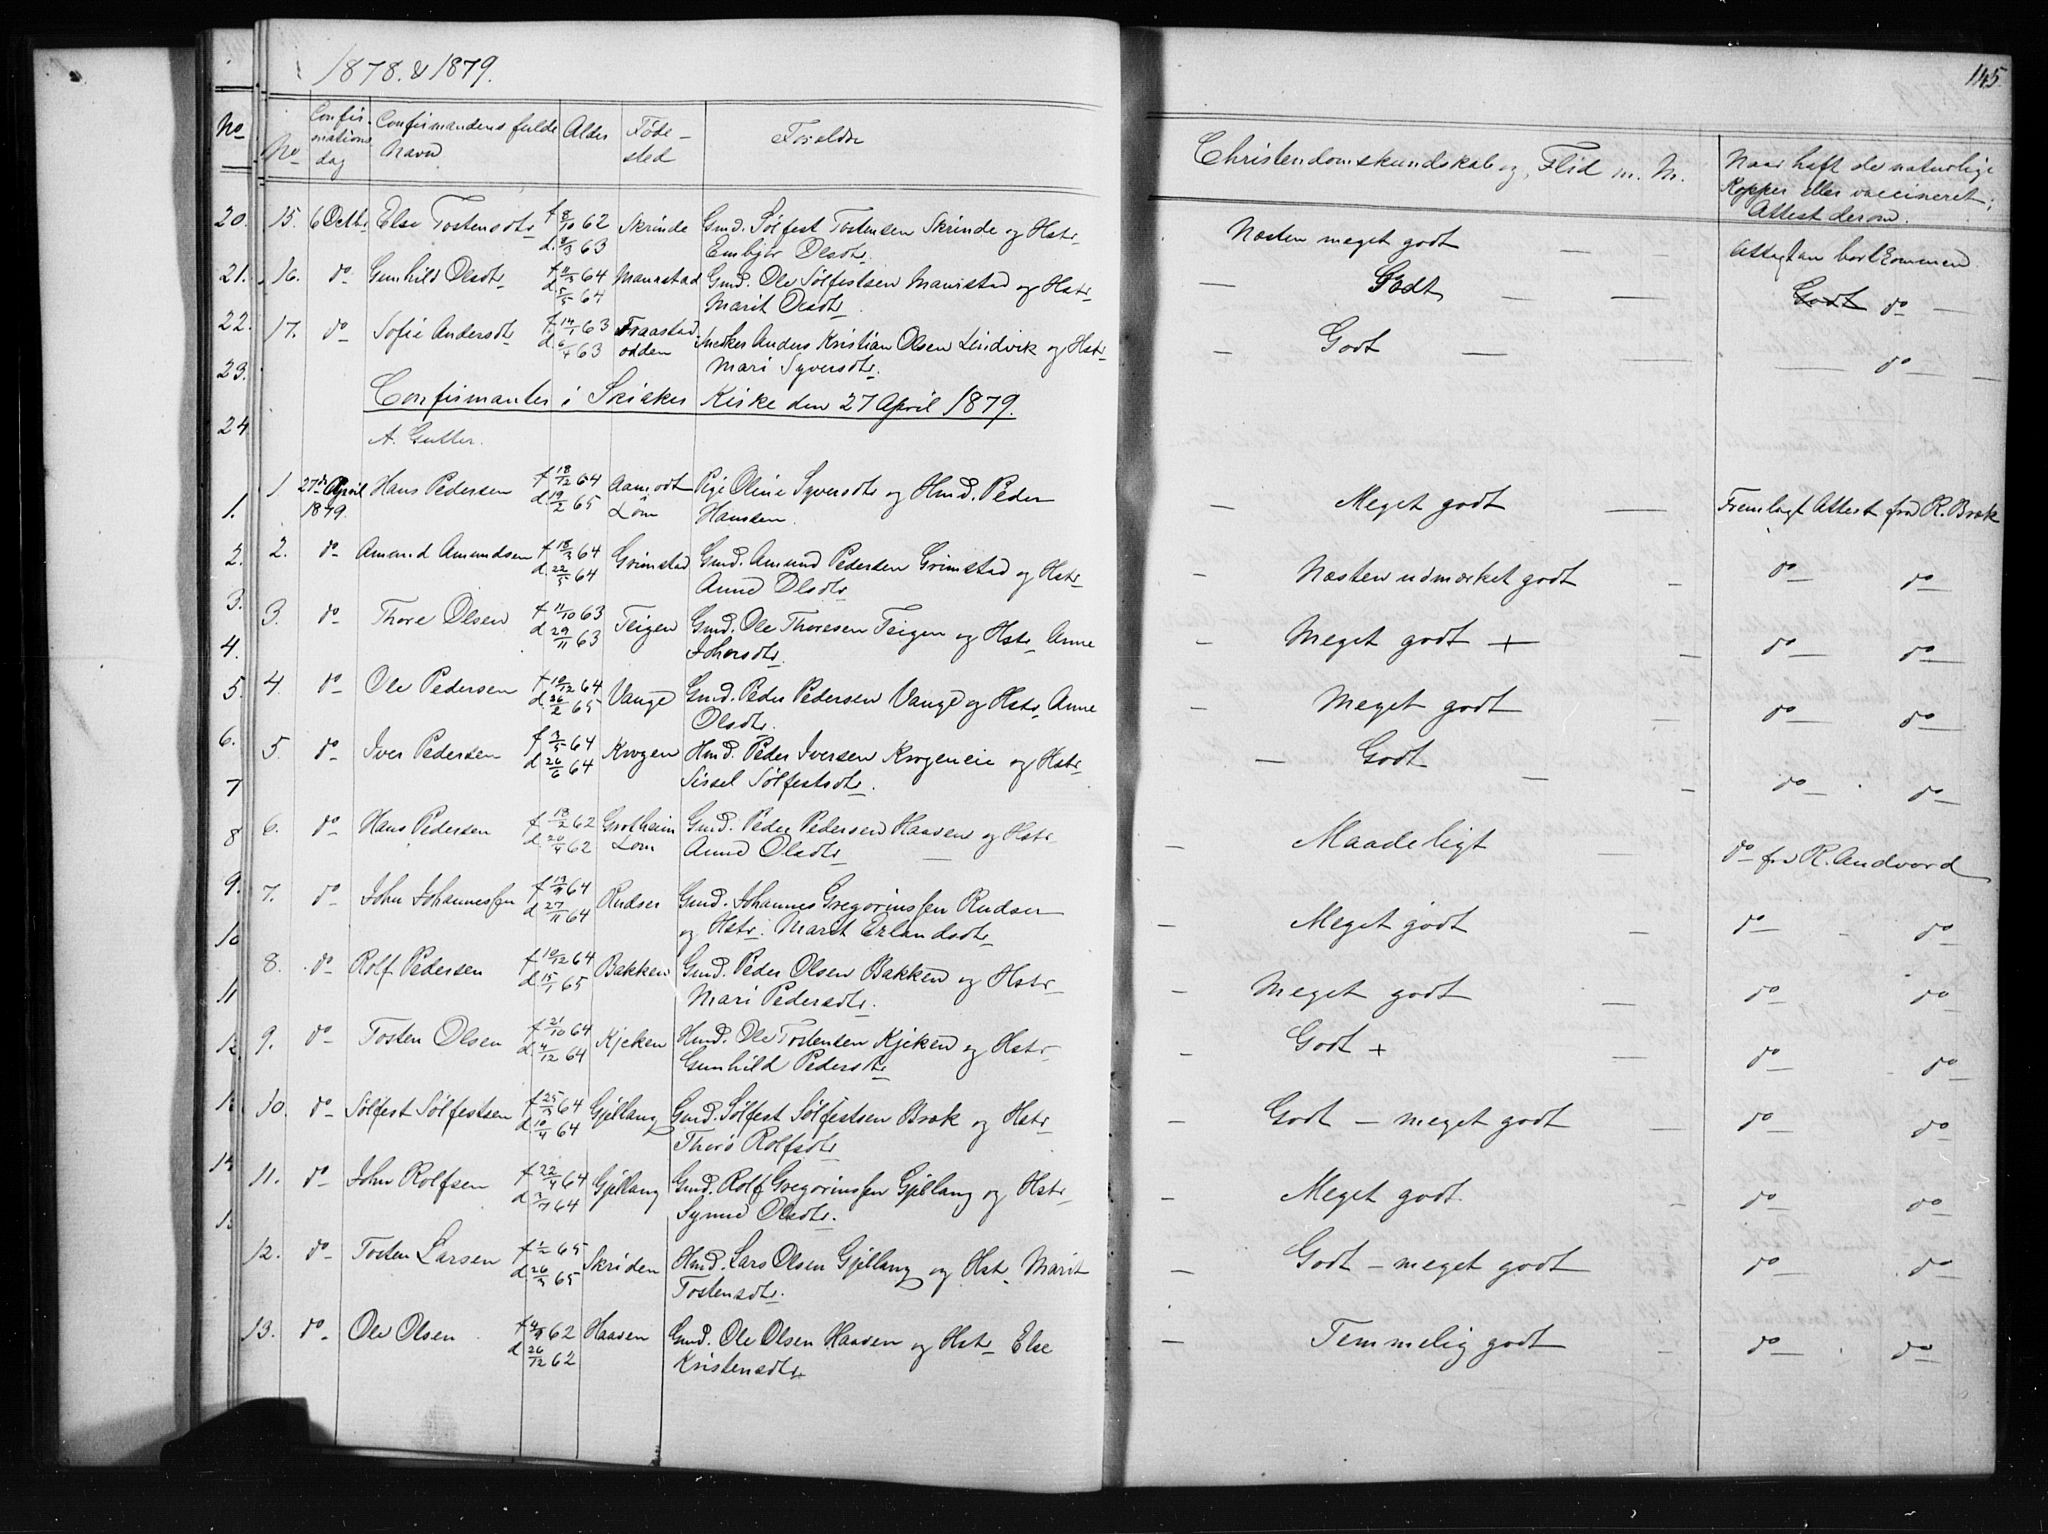 1878. & 1879.
145
No
No
Confirmations dag
Confirmandens fulde Navn
Alder
Fødested
Forældre
Christendomskundskab og Flid m. M.
Naar haft de naturlige Kopper eller vaccineret; Attest derom.
15. 6 Octbr. Else Tostensdtr f 8/10 62 Skrinde Gmd. Sølfest Tostensen Skrinde og Hstr Næsten meget godt — Attesten bortkommen
d. 63 Embjør Olsdtr.
16. do Gunhild Olsdtr 64 Maurstad Gmd. Ole Sølfestsen Maurstad og Hstr — Godt — — Godt do —
64 Marit Olsdtr.
17. do Sofie Andersdtr f 14/1 63 Fraastad Anders Kristian Olsen Lindvik og Hstr — Godt — — do —
d 6/4 63 odden Mari Syversdtr.
Confirmanter i Skiaker Kirke den 27 April 1879.
A. Gutter.
1. 27de April Hans Pedersen f 18/12 64 Aamodt Pige Oline Syversdtr og Hmd. Peder — Meget godt — Fremlagt Attest fra R. Bræk
1879. d 19/2 65 Lom Hansen.
2. do Amund Amundsen f 18/3 64 Grimstad Gmd. Amund Pedersen Grimstad og Hstr — Næsten udmærket godt — do do
d. 22/5 64 Anne Olsdtr
3. do Thore Olsen f 11/10 63 Teigen Gmd. Ole Thoresen Teigen og Hstr Anne — Meget godt + — do do
d. 29/11 63 Johnsdtr.
4. do Ole Pedersen f 10/12 64 Vange Gmd. Peder Pedersen Vange og Hstr Anne — Meget godt — do do
d. 26/2 65 Olsdtr.
5. do Iver Pedersen f 3/5 64 Krogen Hmd. Peder Iversen Krogeneie og Hstr — Godt — — do do
d. 26/6 64 Sissel Sølfestsdtr.
6. do Hans Pedersen f 13/2 62 Grotheim Gmd. Peder Pedersen Haaven og Hstr Maadeligt — do fra R. Andvord
d. 20/4 62 Lom Anne Olsdtr —
7. do John Johannessen f 13/9 64 Rudser Gmd. Johannes Gregoriussen Rudser — Meget godt — do do
d 27/11 64 og Hstr. Marit Erlandsdtr
8. do Rolf Pedersen f 10/12 64 Bakken Gmd. Peder Olsen Bakken og Hstr — Meget godt — do do
d 15/1 65 Mari Pedersdtr.
9. do Tosten Olsen f 21/10 64 Kjeken Hmd. Ole Tostensen Kjeken og Hstr — Godt + do do
d 4/12 64 Gunhild Pedersdtr
10. do Sølfest Sølfestsen f 25/3 64 Gjellang Gmd. Sølfest Sølfestsen Bræk og Hstr — Godt — meget godt — do do
d 10/4 64 Thora Rolfsdtr
11. do John Rolfsen f 22/4 64 Gjellang Gmd. Rolf Gregoriussen Gjellang og Hstr — Meget godt. — do do
d 64 Synne Olsdtr.
12. do Tosten Larsen f 65 Skriden Hmd. Lars Olsen Gjellang og Hstr Marit — Godt — meget godt do do
d 26/3 65 Tostensdtr.
13. do Ole Olsen f 62 Haaven Gmd. Ole Olsen Haaven og Hstr Else — Temmelig godt — do do
d 26/12 62 Kristensdtr
20.
21.
22.
23.
24
1.
2.
3.
4.
5.
6.
7
8
9.
10
11
12
13.
14